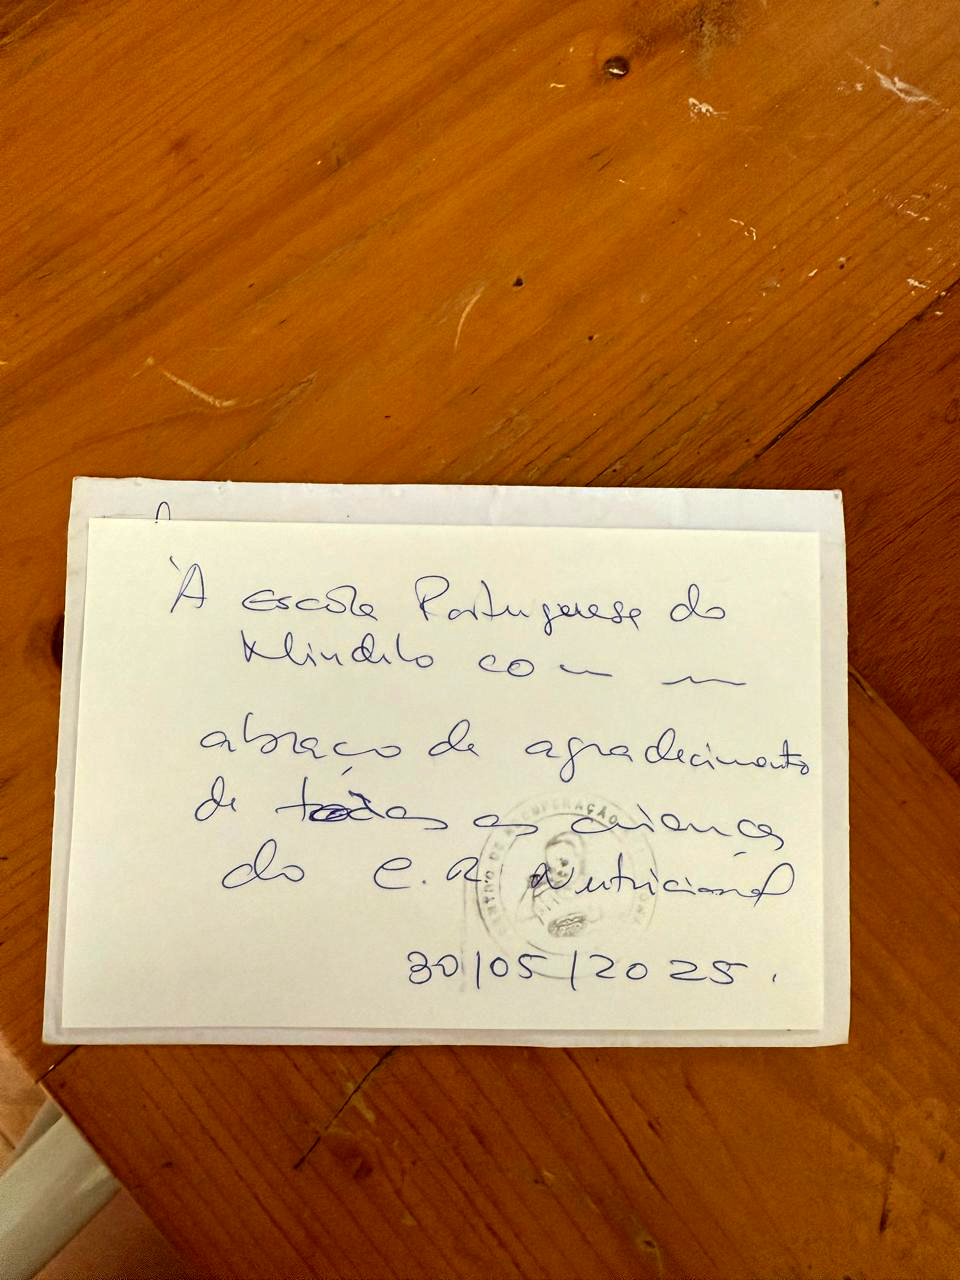 À Escola Portuguesa do
Mindelo com um
abraço de agradecimento
de todas as crianças
do C.R. Nutricional
30/05/2025.
CENTRO DE RECUPERAÇÃO